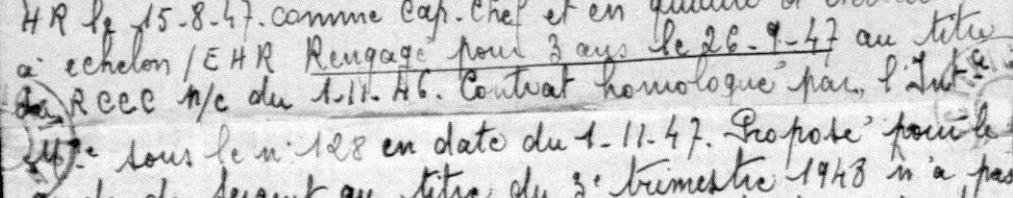 HR le 15-8-47. comme Cap. Chef et en qualité
à echelon / EHR Rengagé pour 3 ans le 26-9-47 au titre
du RCCC p/c du 1-11-46. Contrat homologué par l'Intce
sous le n° 128 en date du 1-11-47. Proposé pour le
titre du 3e trimestre 1948 n'a pas